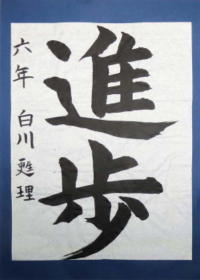 進歩
六年 白川 甦理